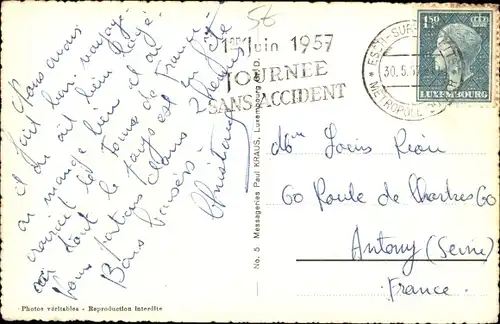 Nous avons
fait bon voyage
et on est bien logé
on mange bien et on
suivrait le Tour de France
car tout le pays est en fête
Nous partons dans 2 heures
Bons baisers
Christiane
1er Juin 1957
JOURNEE
SANS ACCIDENT
ESCH-SUR-
30.5.5
METROPOLE
1F50
LUXEMBOURG
No. 5 Messageries Paul KRAUS, Luxembourg
Mr Louis
60 Route de Chartres 60
Antony (Seine)
France.
Photos véritables - Reproduction interdite